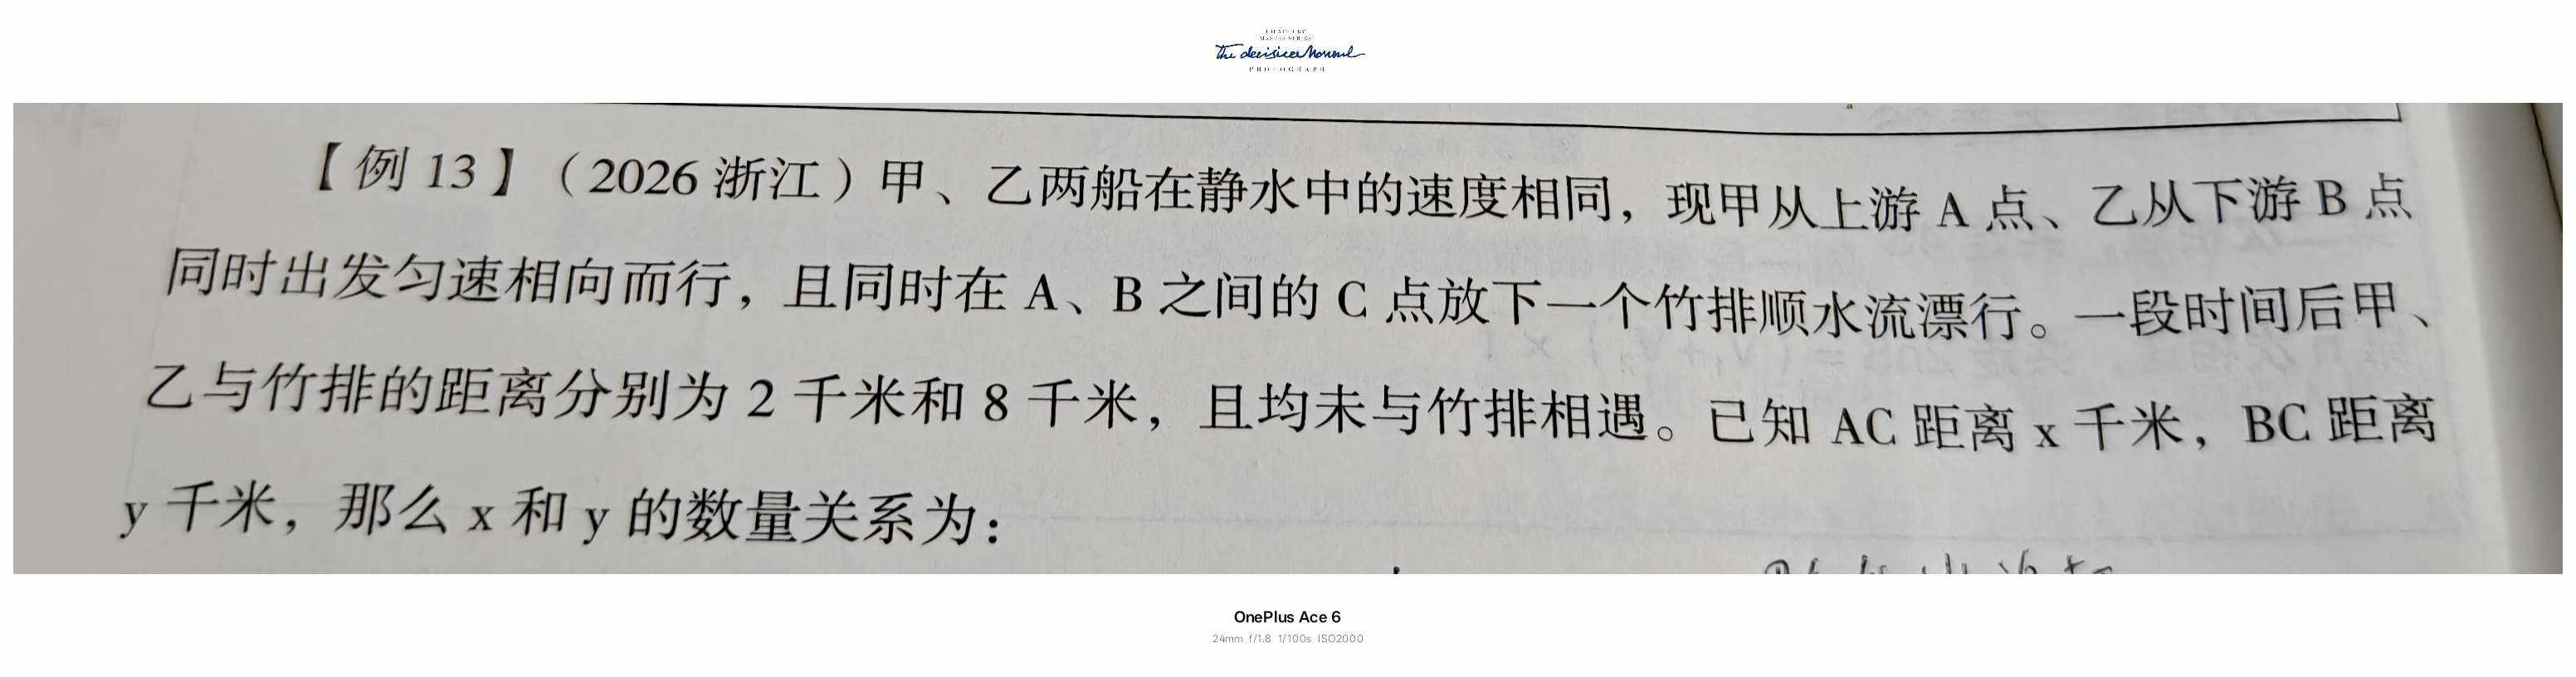 The decisive Moment
PHOTOGRAPH
【例 13】（2026 浙江）甲、乙两船在静水中的速度相同，现甲从上游 A 点、乙从下游 B 点
同时出发匀速相向而行，且同时在 A、B 之间的 C 点放下一个竹排顺水流漂行。一段时间后甲、
乙与竹排的距离分别为 2 千米和 8 千米，且均未与竹排相遇。已知 AC 距离 x 千米，BC 距离
y 千米，那么 x 和 y 的数量关系为：
OnePlus Ace 6
24mm f/1.8 1/100s ISO2000